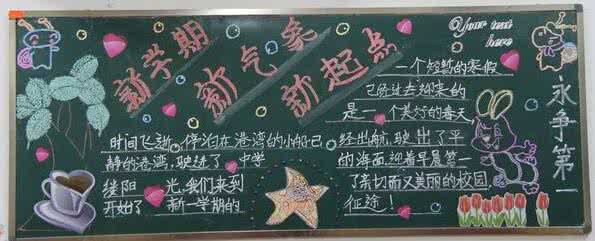 新学期
新气象
新起点
@Your text
here
一个短暂的寒假
已经过去迎来的
是一个美好的春天
永争第一
时间飞逝 停泊在港湾的小船已经出航,驶出了平
静的港湾,驶进了 中学 的海面,迎着早晨第一
缕阳 光,我们来到了亲切而又美丽的校园,
开始了 新一学期的征途!